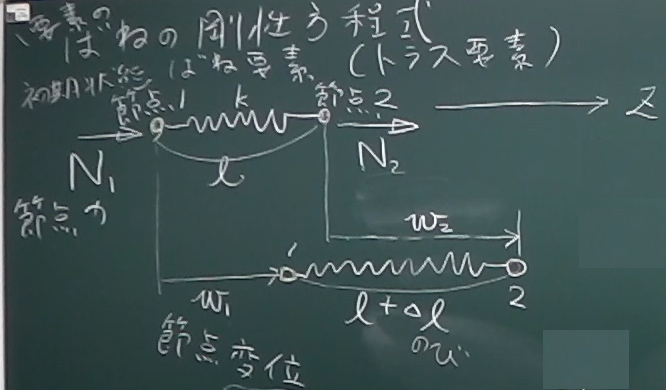 要素の
ばねの剛性方程式
(トラス要素)
初期状態 ばね要素
節点1 k 節点2
Z
N₁ l N₂
節点力
w₂
1
2
w₁ l+Δl
のび
節点変位